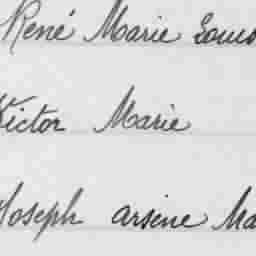 René Marie Louis
Victor Marie
Joseph arsène Ma